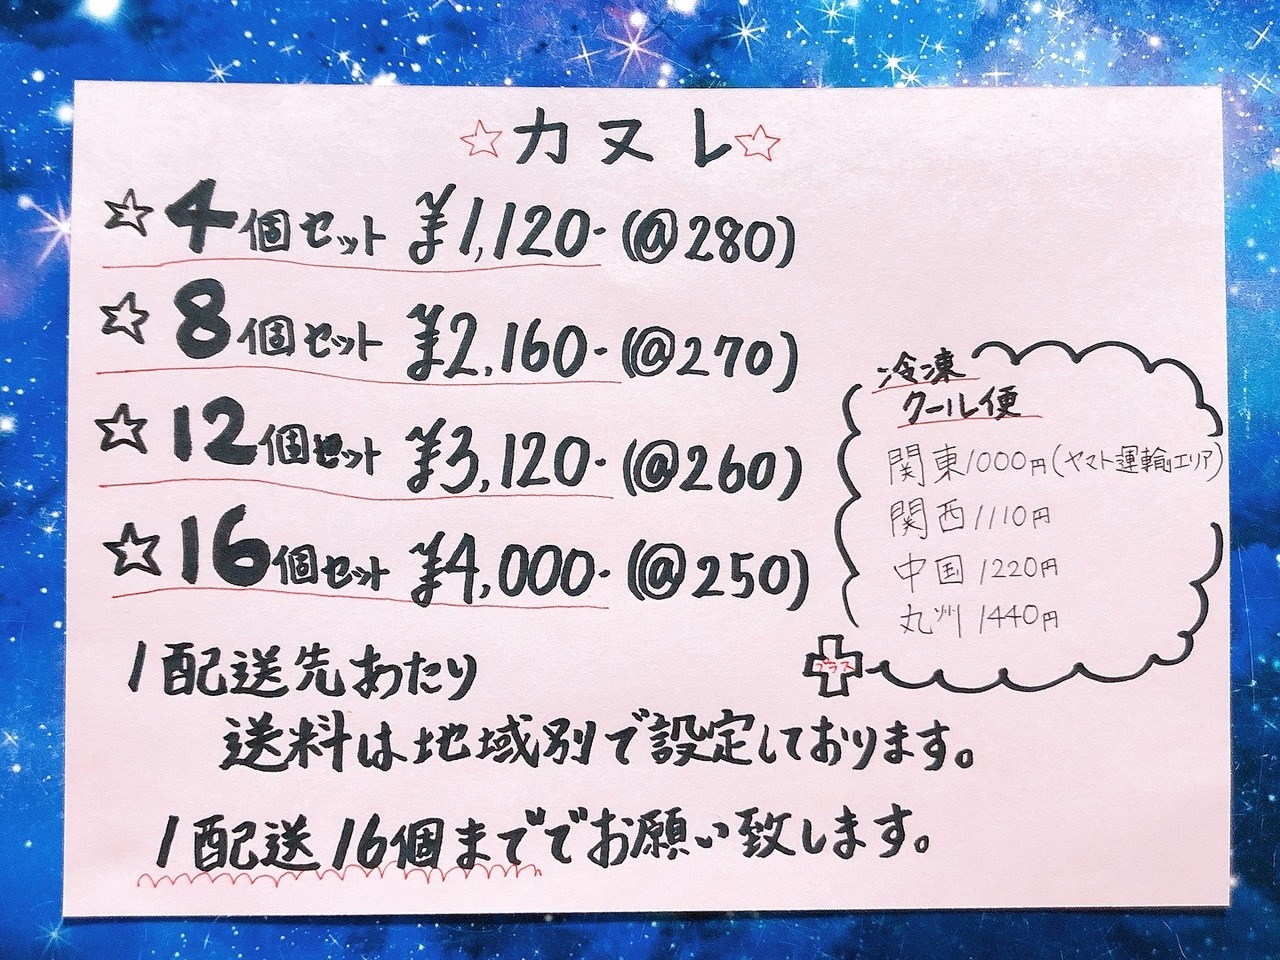 ☆カヌレ☆
☆4個セット ¥1,120-(@280)
☆8個セット ¥2,160-(@270)
☆12個セット ¥3,120-(@260)
☆16個セット ¥4,000-(@250)
冷凍
クール便
関東1000円(ヤマト運輸エリア)
関西1110円
中国1220円
九州1440円
プラス
1配送先あたり
送料は地域別で設定しております。
1配送16個まででお願い致します。